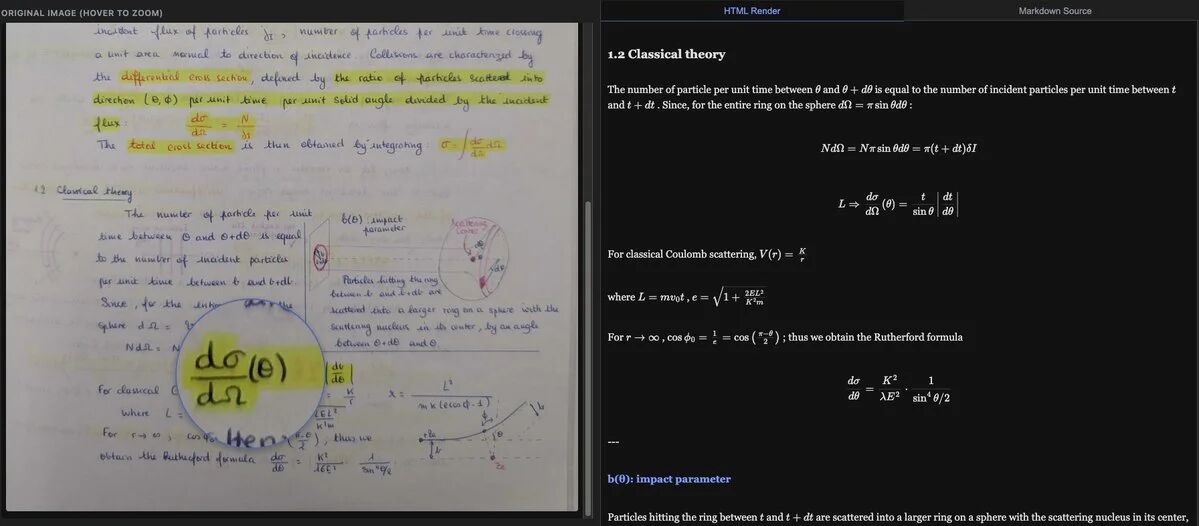 ORIGINAL IMAGE (HOVER TO ZOOM)
incident flux of particles J_I, number of particles per unit time crossing
a unit area normal to direction of incidence. Collisions are characterized by
the differential cross section, defined by the ratio of particles scattered into
direction (θ, ϕ) per unit time per unit solid angle divided by the incident
flux: dσ/dΩ = N/J_I
The total cross section is then obtained by integrating: σ = ∫ dσ/dΩ dΩ
1.2 Classical theory
The number of particle per unit
time between θ and θ+dθ is equal
to the number of incident particles
per unit time between b and b+db.
Since, for the
sphere dΩ =
NdΩ = N
dσ/dΩ (θ)
|db/dθ|
For classical
K/r
where L =
2EL²/K²m
For r → ∞, cos ϕ₀
Hen
(π-θ/2), thus we
obtain the Rutherford formula dσ/dθ = K²/16E² 1/sin⁴θ/2
b(θ) impact
parameter
Scattering
center
dθ
Particles hitting the ring
between b and b+db are
scattered into a larger ring on a sphere with the
scattering nucleus in its center, by an angle
between θ+dθ and θ.
r = L²/mK(e cos ϕ - 1)
ϕ
θ
b
HTML Render
Markdown Source
1.2 Classical theory
The number of particle per unit time between θ and θ + dθ is equal to the number of incident particles per unit time between t
and t + dt . Since, for the entire ring on the sphere dΩ = π sin θdθ :
NdΩ = Nπ sin θdθ = π(t + dt)δI
L ⇒ dσ/dΩ (θ) = t/sin θ |dt/dθ|
For classical Coulomb scattering, V(r) = K/r
where L = mv₀t , e = √(1 + 2EL²/K²m)
For r → ∞ , cos ϕ₀ = 1/e = cos (π−θ/2) ; thus we obtain the Rutherford formula
dσ/dθ = K²/λE² · 1/sin⁴ θ/2
---
b(θ): impact parameter
Particles hitting the ring between t and t + dt are scattered into a larger ring on a sphere with the scattering nucleus in its center,